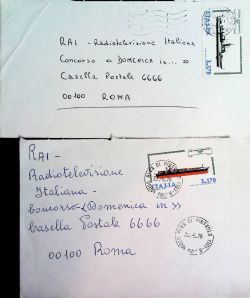 RAI - Radiotelevisione Italiana
Concorso a DOMENICA in...»
Casella Postale 6666
00100 ROMA
ITALIA
L.170
RAI-
Radiotelevisione
Italiana-
Concorso-«Domenica in»
Casella Postale 6666
00100 Roma
ITALIA
L.170